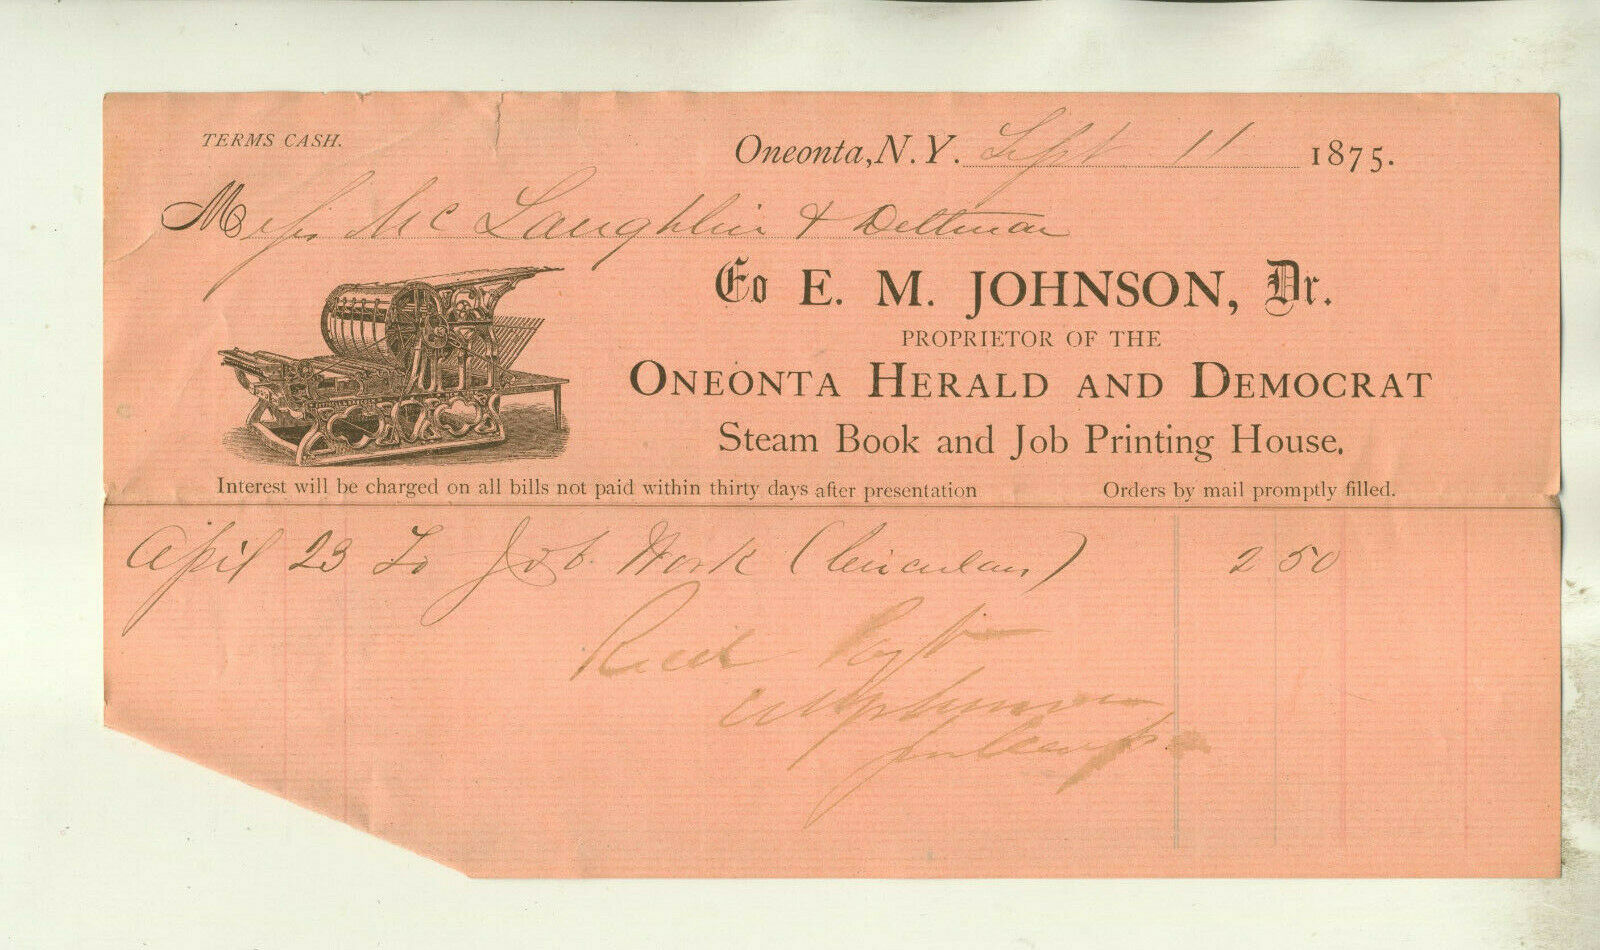 TERMS CASH.
Oneonta, N. Y. Sept 11 1875.
Mess McLaughlin & Dettman
To E. M. JOHNSON, Dr.
PROPRIETOR OF THE
ONEONTA HERALD AND DEMOCRAT
Steam Book and Job Printing House.
Interest will be charged on all bills not paid within thirty days after presentation
Orders by mail promptly filled.
April 23 To Job. Work (Circulars) 2 50
Recd Payt